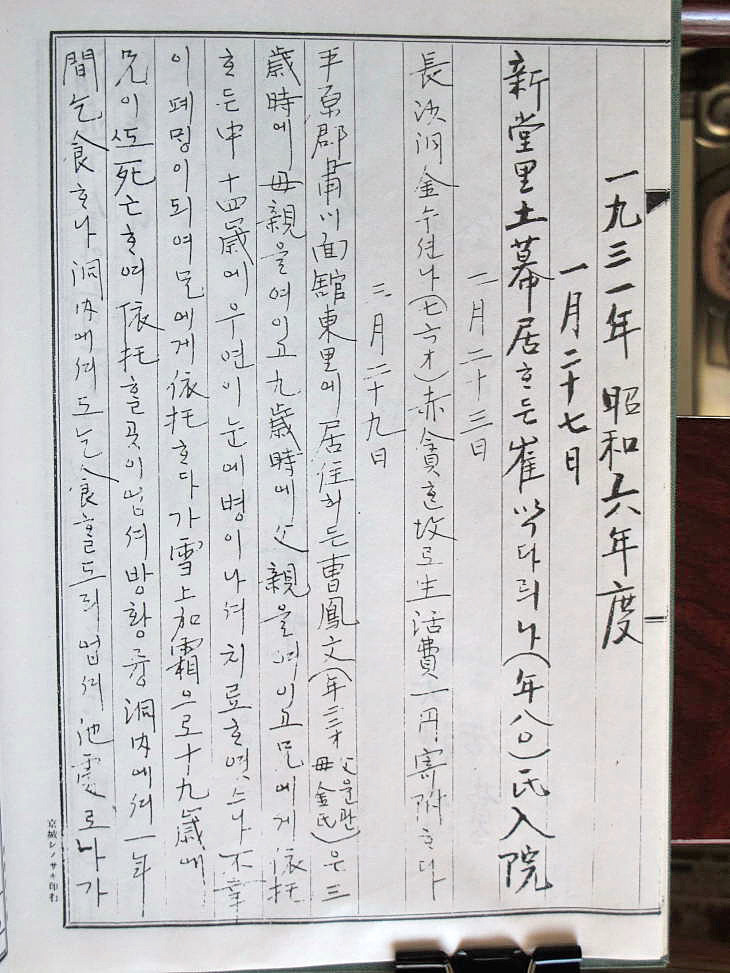 一九三一年 昭和六年度
一月二十七日
新堂里土幕居ᄒᆞ든崔막다릐나(年八〇)氏入院
二月二十三日
長沙洞金수산나(七六才)赤貧ᄒᆞᆫ故로生活費一円寄附ᄒᆞ다
三月二十九日
平原郡甫川面舘東里에居住하든曹鳳文(年三二才 父문관 母金氏)은三
歲時에母親을여이고九歲時에父親을여이고兄에게依托
ᄒᆞ든中十四歲에우연이눈에병이나셔치료ᄒᆞ엿스나不幸
이폐밍이되여兄에게依托ᄒᆞ다가雪上加霜으로十九歲에
兄이ᄯᅩ死亡ᄒᆞ여依托ᄒᆞᆯ곳이업셔방황즁洞內에셔一年
間乞食ᄒᆞ나洞內에셔도乞食ᄒᆞᆯ도리업셔他處로나가
京城レノサキ印行